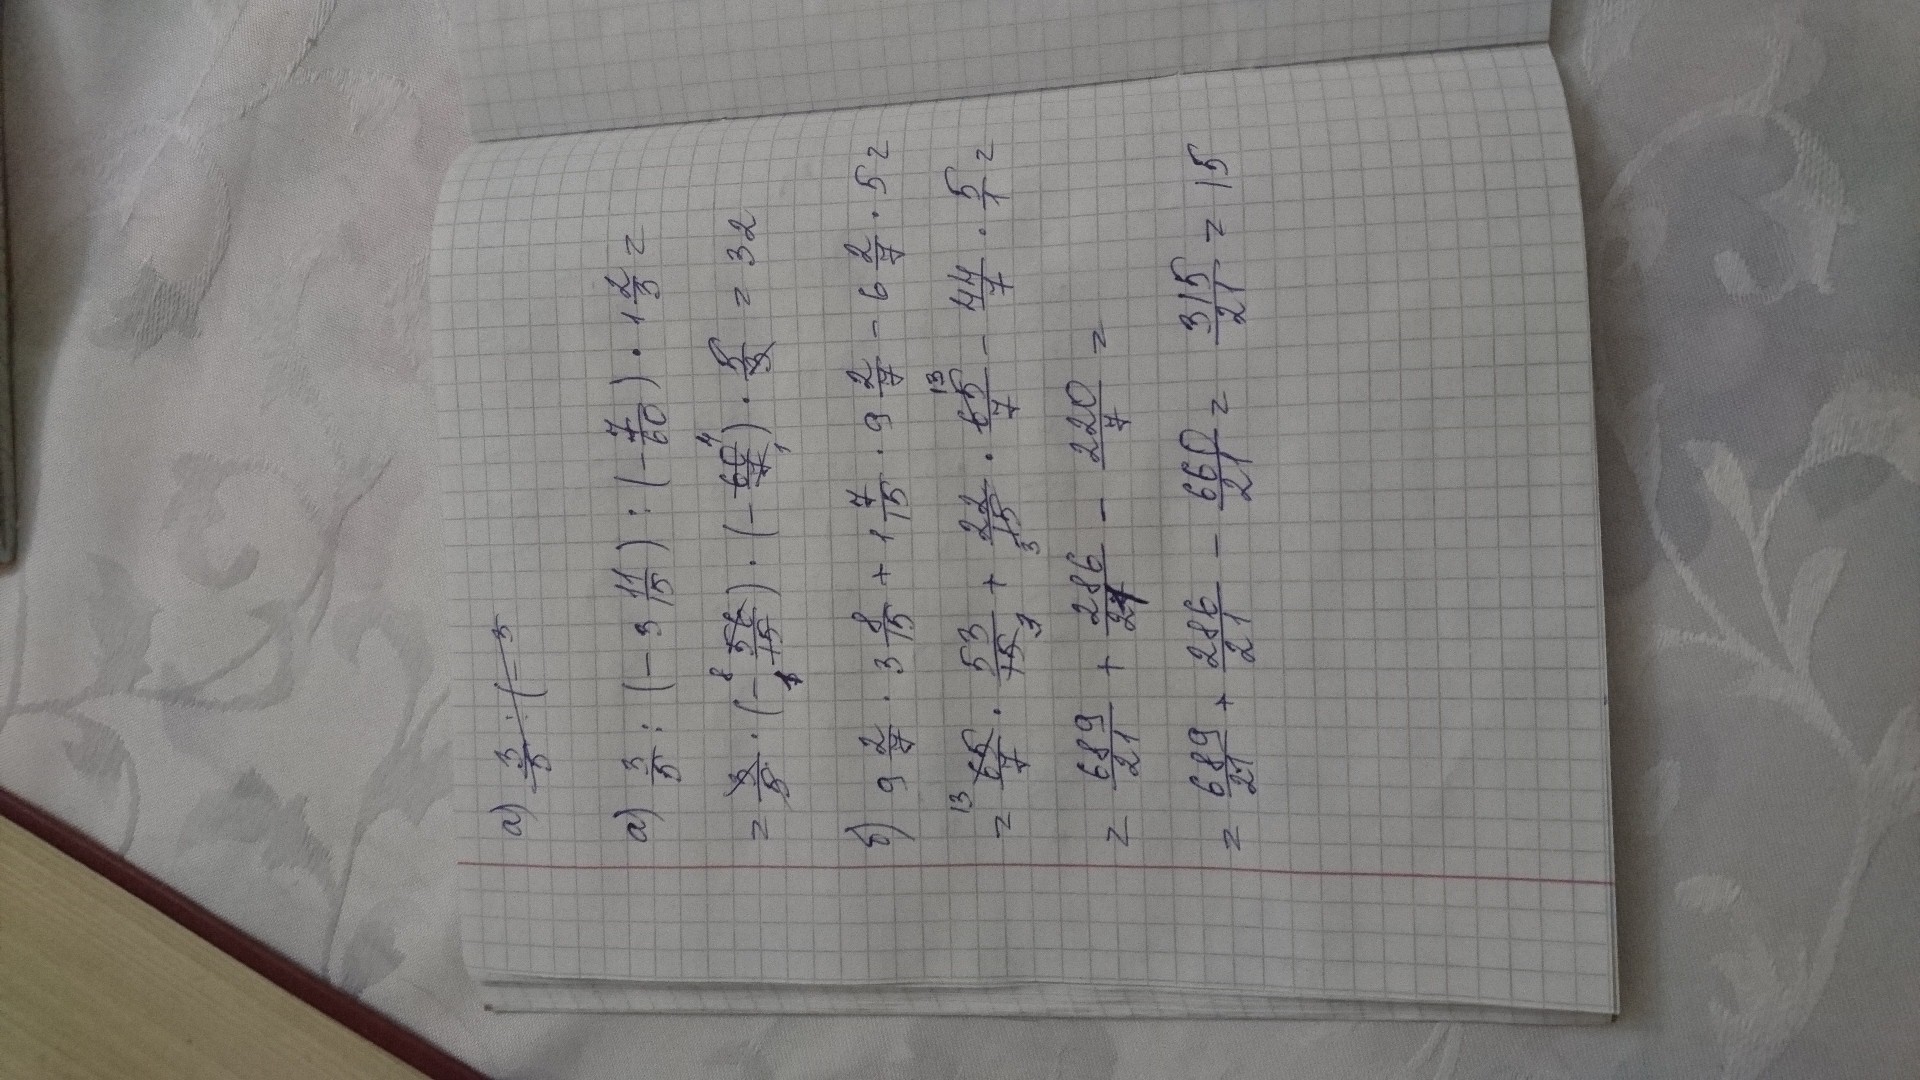 а) 3/5 : (- 3
а) 3/5 : (- 3 11/15) : (- 7/60) · 1 2/3 =
= 3/5 · (- 56/15) · (- 60/7) · 5/3 = 32
б) 9 2/7 · 3 8/15 + 1 7/15 · 9 2/7 - 6 2/7 · 5 =
= 65/7 · 53/15 + 22/15 · 65/7 - 44/7 · 5/1 =
= 689/21 + 286/21 - 220/7 =
= 689/21 + 286/21 - 660/21 = 315/21 = 15